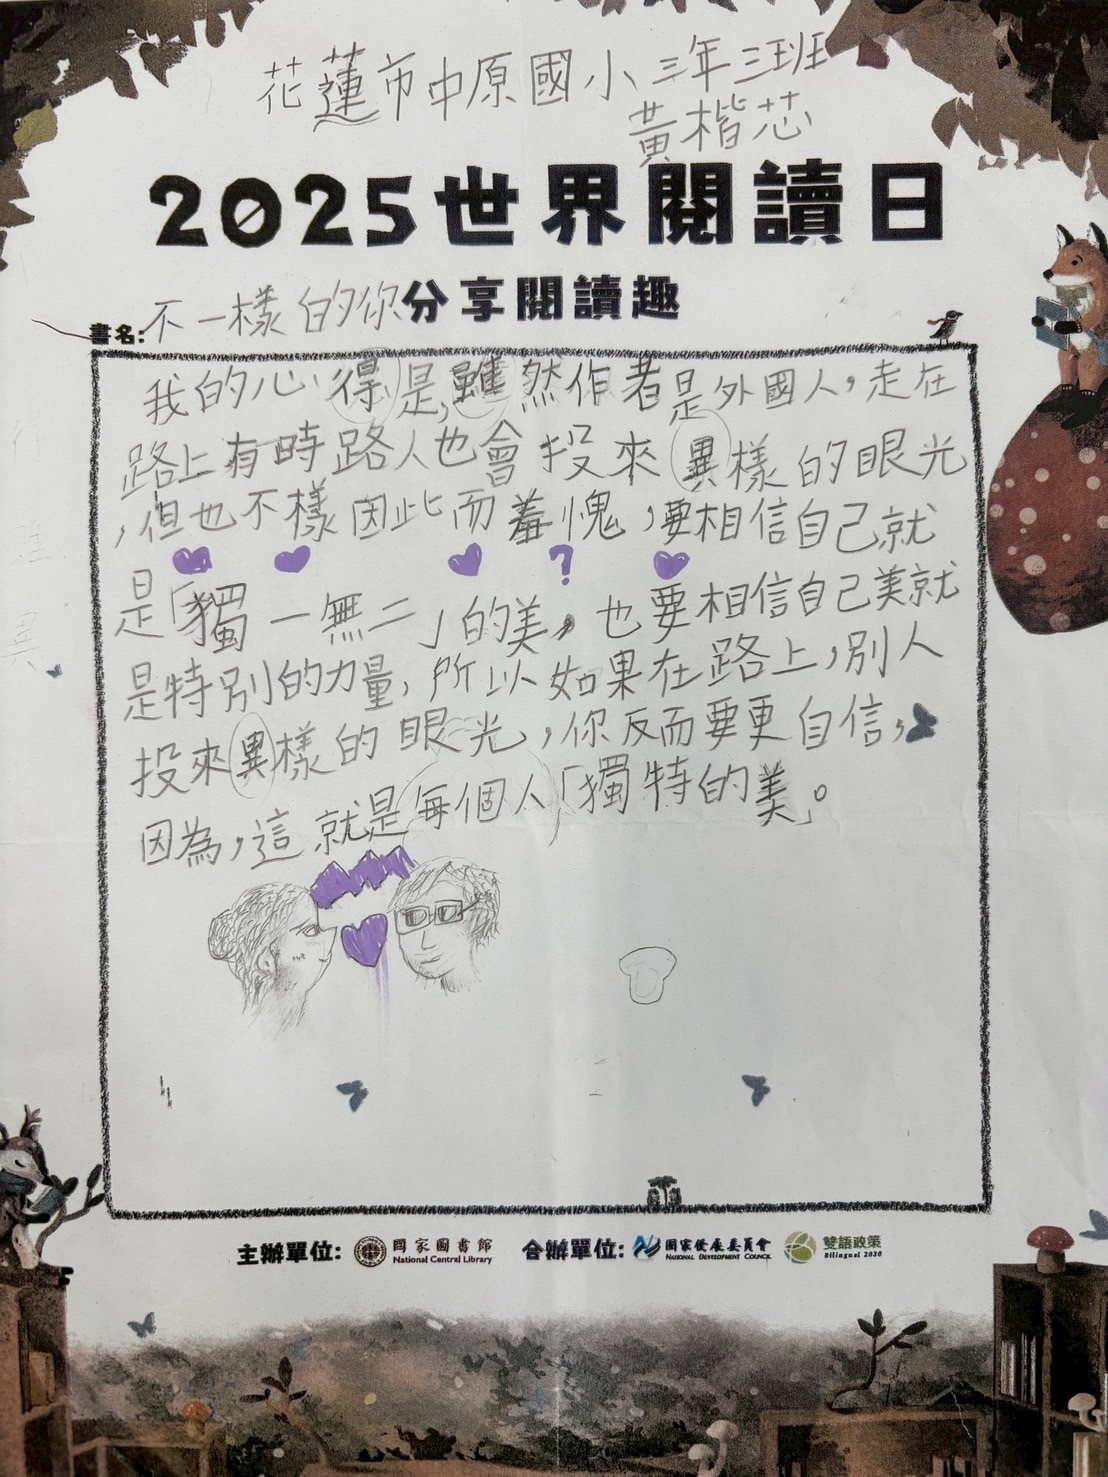 花蓮市中原國小三年三班
黃楷芯
2025世界閱讀日
分享閱讀趣
書名:不一樣的你
我的心得是,雖然作者是外國人,走在
路上有時路人也會投來異樣的眼光
,但也不樣因此而羞愧,要相信自己就
是「獨一無二」的美,也要相信自己美就
是特別的力量,所以如果在路上,別人
投來異樣的眼光,你反而要更自信,
因為,這就是每個人「獨特的美」。
?
主辦單位: 國家圖書館 National Central Library 合辦單位: 國家發展委員會 National Development Council 雙語政策 Bilingual 2030